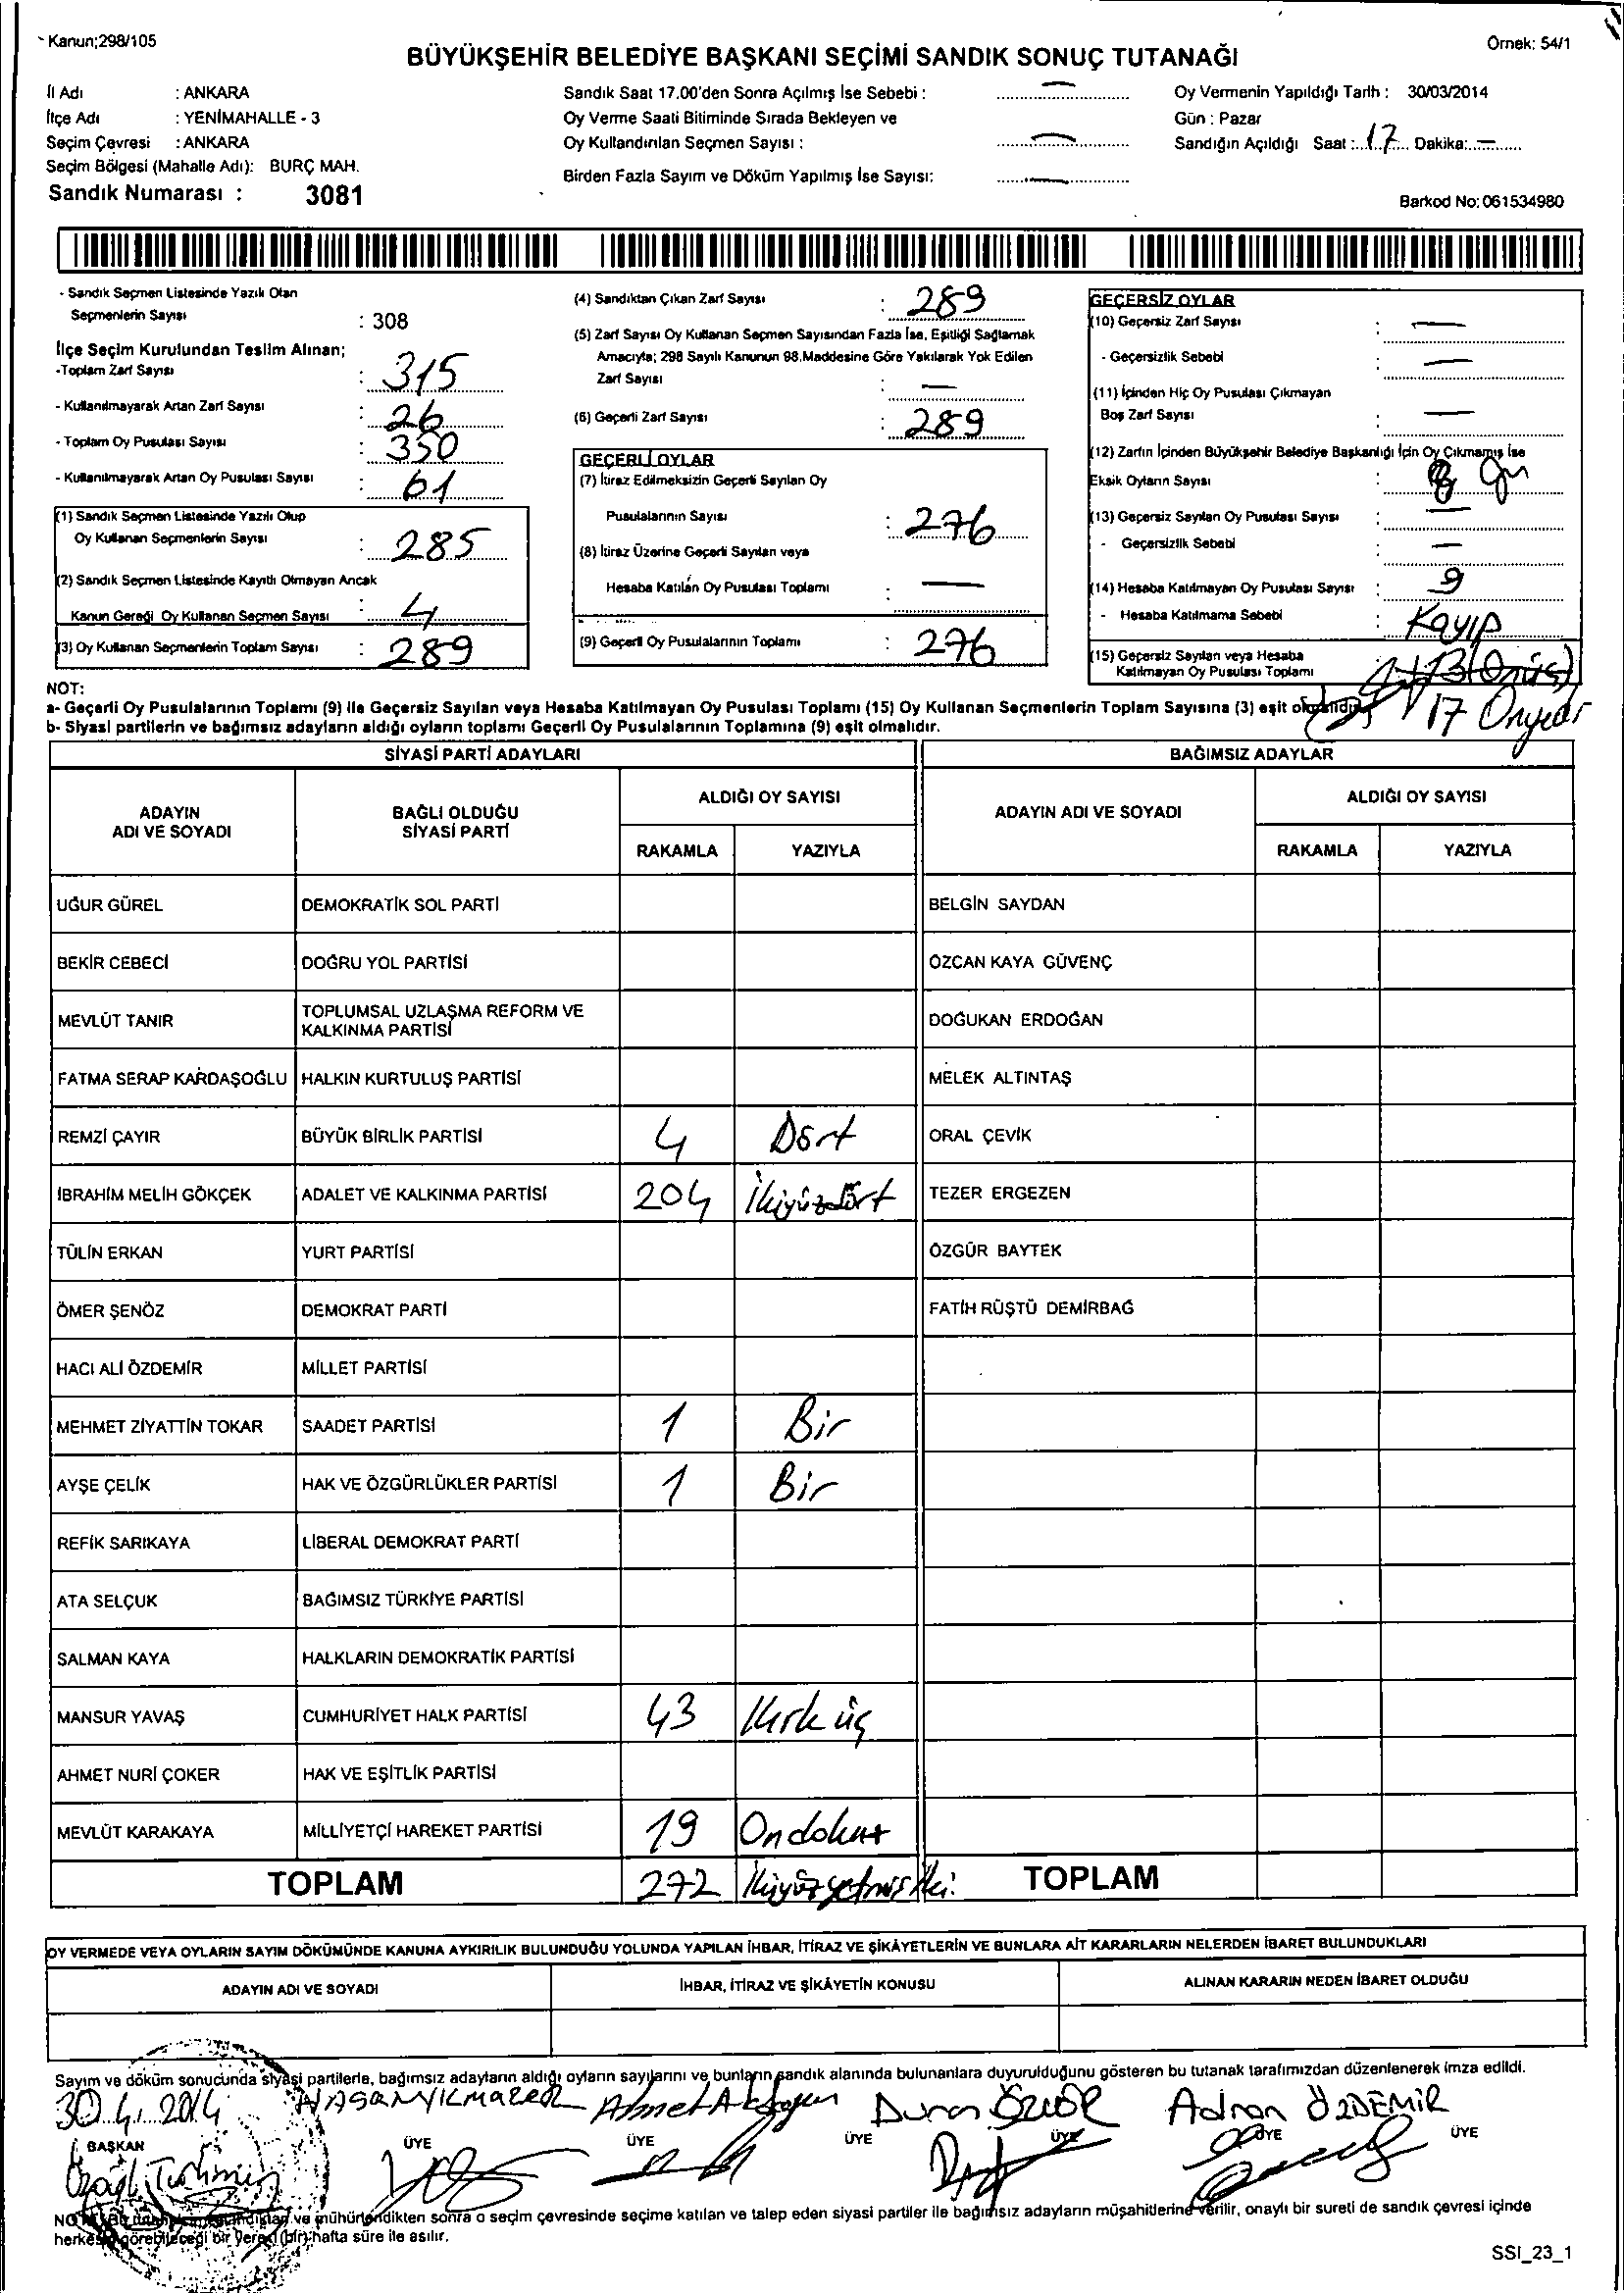 Kanun;298/105
Örnek: 54/1
BÜYÜKŞEHİR BELEDİYE BAŞKANI SEÇİMİ SANDIK SONUÇ TUTANAĞI
İl Adı : ANKARA
İlçe Adı : YENİMAHALLE - 3
Seçim Çevresi : ANKARA
Seçim Bölgesi (Mahalle Adı): BURÇ MAH.
Sandık Numarası : 3081
Sandık Saat 17.00'den Sonra Açılmış İse Sebebi : —
Oy Verme Saati Bitiminde Sırada Bekleyen ve
Oy Kullandırılan Seçmen Sayısı : —
Birden Fazla Sayım ve Döküm Yapılmış İse Sayısı: —
Oy Vermenin Yapıldığı Tarih : 30/03/2014
Gün : Pazar
Sandığın Açıldığı Saat : 17 Dakika: —
Barkod No: 061534980
- Sandık Seçmen Listesinde Yazılı Olan
Seçmenlerin Sayısı : 308
İlçe Seçim Kurulundan Teslim Alınan;
-Toplam Zarf Sayısı : 315
- Kullanılmayarak Artan Zarf Sayısı : 26
- Toplam Oy Pusulası Sayısı : 350
- Kullanılmayarak Artan Oy Pusulası Sayısı : 61
(1) Sandık Seçmen Listesinde Yazılı Olup
Oy Kullanan Seçmenlerin Sayısı : 285
(2) Sandık Seçmen Listesinde Kayıtlı Olmayan Ancak
Kanun Gereği Oy Kullanan Seçmen Sayısı : 4
(3) Oy Kullanan Seçmenlerin Toplam Sayısı : 289
(4) Sandıktan Çıkan Zarf Sayısı : 289
(5) Zarf Sayısı Oy Kullanan Seçmen Sayısından Fazla İse, Eşitliği Sağlamak
Amacıyla; 298 Sayılı Kanunun 98.Maddesine Göre Yakılarak Yok Edilen
Zarf Sayısı : —
(6) Geçerli Zarf Sayısı : 289
GEÇERLİ OYLAR
(7) İtiraz Edilmeksizin Geçerli Sayılan Oy
Pusulalarının Sayısı : 276
(8) İtiraz Üzerine Geçerli Sayılan veya
Hesaba Katılan Oy Pusulası Toplamı : —
(9) Geçerli Oy Pusulalarının Toplamı : 276
GEÇERSİZ OYLAR
(10) Geçersiz Zarf Sayısı : —
- Geçersizlik Sebebi : —
(11) İçinden Hiç Oy Pusulası Çıkmayan
Boş Zarf Sayısı : —
(12) Zarfın İçinden Büyükşehir Belediye Başkanlığı İçin Oy Çıkmamış İse
Eksik Oyların Sayısı : 8
(13) Geçersiz Sayılan Oy Pusulası Sayısı : —
- Geçersizlik Sebebi : —
(14) Hesaba Katılmayan Oy Pusulası Sayısı : 9
- Hesaba Katılmama Sebebi : Kayıp
(15) Geçersiz Sayılan veya Hesaba
Katılmayan Oy Pusulası Toplamı 13 (Onüç)
17 Onyedi
NOT:
a- Geçerli Oy Pusulalarının Toplamı (9) ile Geçersiz Sayılan veya Hesaba Katılmayan Oy Pusulası Toplamı (15) Oy Kullanan Seçmenlerin Toplam Sayısına (3) eşit olmalıdır.
b- Siyasi partilerin ve bağımsız adayların aldığı oyların toplamı Geçerli Oy Pusulalarının Toplamına (9) eşit olmalıdır.
SİYASİ PARTİ ADAYLARI BAĞIMSIZ ADAYLAR
ADAYIN ADI VE SOYADI BAĞLI OLDUĞU SİYASİ PARTİ ALDIĞI OY SAYISI ADAYIN ADI VE SOYADI ALDIĞI OY SAYISI
RAKAMLA YAZIYLA RAKAMLA YAZIYLA
UĞUR GÜREL DEMOKRATİK SOL PARTİ BELGİN SAYDAN
BEKİR CEBECİ DOĞRU YOL PARTİSİ ÖZCAN KAYA GÜVENÇ
MEVLÜT TANIR TOPLUMSAL UZLAŞMA REFORM VE KALKINMA PARTİSİ DOĞUKAN ERDOĞAN
FATMA SERAP KARDAŞOĞLU HALKIN KURTULUŞ PARTİSİ MELEK ALTINTAŞ
REMZİ ÇAYIR BÜYÜK BİRLİK PARTİSİ 4 Dört ORAL ÇEVİK
İBRAHİM MELİH GÖKÇEK ADALET VE KALKINMA PARTİSİ 204 İkiyüzdört TEZER ERGEZEN
TÜLİN ERKAN YURT PARTİSİ ÖZGÜR BAYTEK
ÖMER ŞENÖZ DEMOKRAT PARTİ FATİH RÜŞTÜ DEMİRBAĞ
HACI ALİ ÖZDEMİR MİLLET PARTİSİ
MEHMET ZİYATTİN TOKAR SAADET PARTİSİ 1 Bir
AYŞE ÇELİK HAK VE ÖZGÜRLÜKLER PARTİSİ 1 Bir
REFİK SARIKAYA LİBERAL DEMOKRAT PARTİ
ATA SELÇUK BAĞIMSIZ TÜRKİYE PARTİSİ
SALMAN KAYA HALKLARIN DEMOKRATİK PARTİSİ
MANSUR YAVAŞ CUMHURİYET HALK PARTİSİ 43 Kırk üç
AHMET NURİ ÇOKER HAK VE EŞİTLİK PARTİSİ
MEVLÜT KARAKAYA MİLLİYETÇİ HAREKET PARTİSİ 19 Ondokuz
TOPLAM 272 İkiyüzyetmiş iki. TOPLAM
OY VERMEDE VEYA OYLARIN SAYIM DÖKÜMÜNDE KANUNA AYKIRILIK BULUNDUĞU YOLUNDA YAPILAN İHBAR, İTİRAZ VE ŞİKAYETLERİN VE BUNLARA AİT KARARLARIN NELERDEN İBARET BULUNDUKLARI
ADAYIN ADI VE SOYADI İHBAR, İTİRAZ VE ŞİKAYETİN KONUSU ALINAN KARARIN NEDEN İBARET OLDUĞU
Sayım ve döküm sonucunda siyasi partilerle, bağımsız adayların aldığı oyların sayılarını ve bunların sandık alanında bulunanlara duyurulduğunu gösteren bu tutanak tarafımızdan düzenlenerek imza edildi.
30.4.2014 Ahmet Duran ÖZGÜR Adnan ÖZDEMİR
BAŞKAN ÜYE ÜYE ÜYE ÜYE ÜYE ÜYE
ve mühürlendikten sonra o seçim çevresinde seçime katılan ve talep eden siyasi partiler ile bağımsız adayların müşahitlerine verilir, onaylı bir sureti de sandık çevresi içinde
herkesin görebileceği bir yere (bir) hafta süre ile asılır.
SSI_23_1